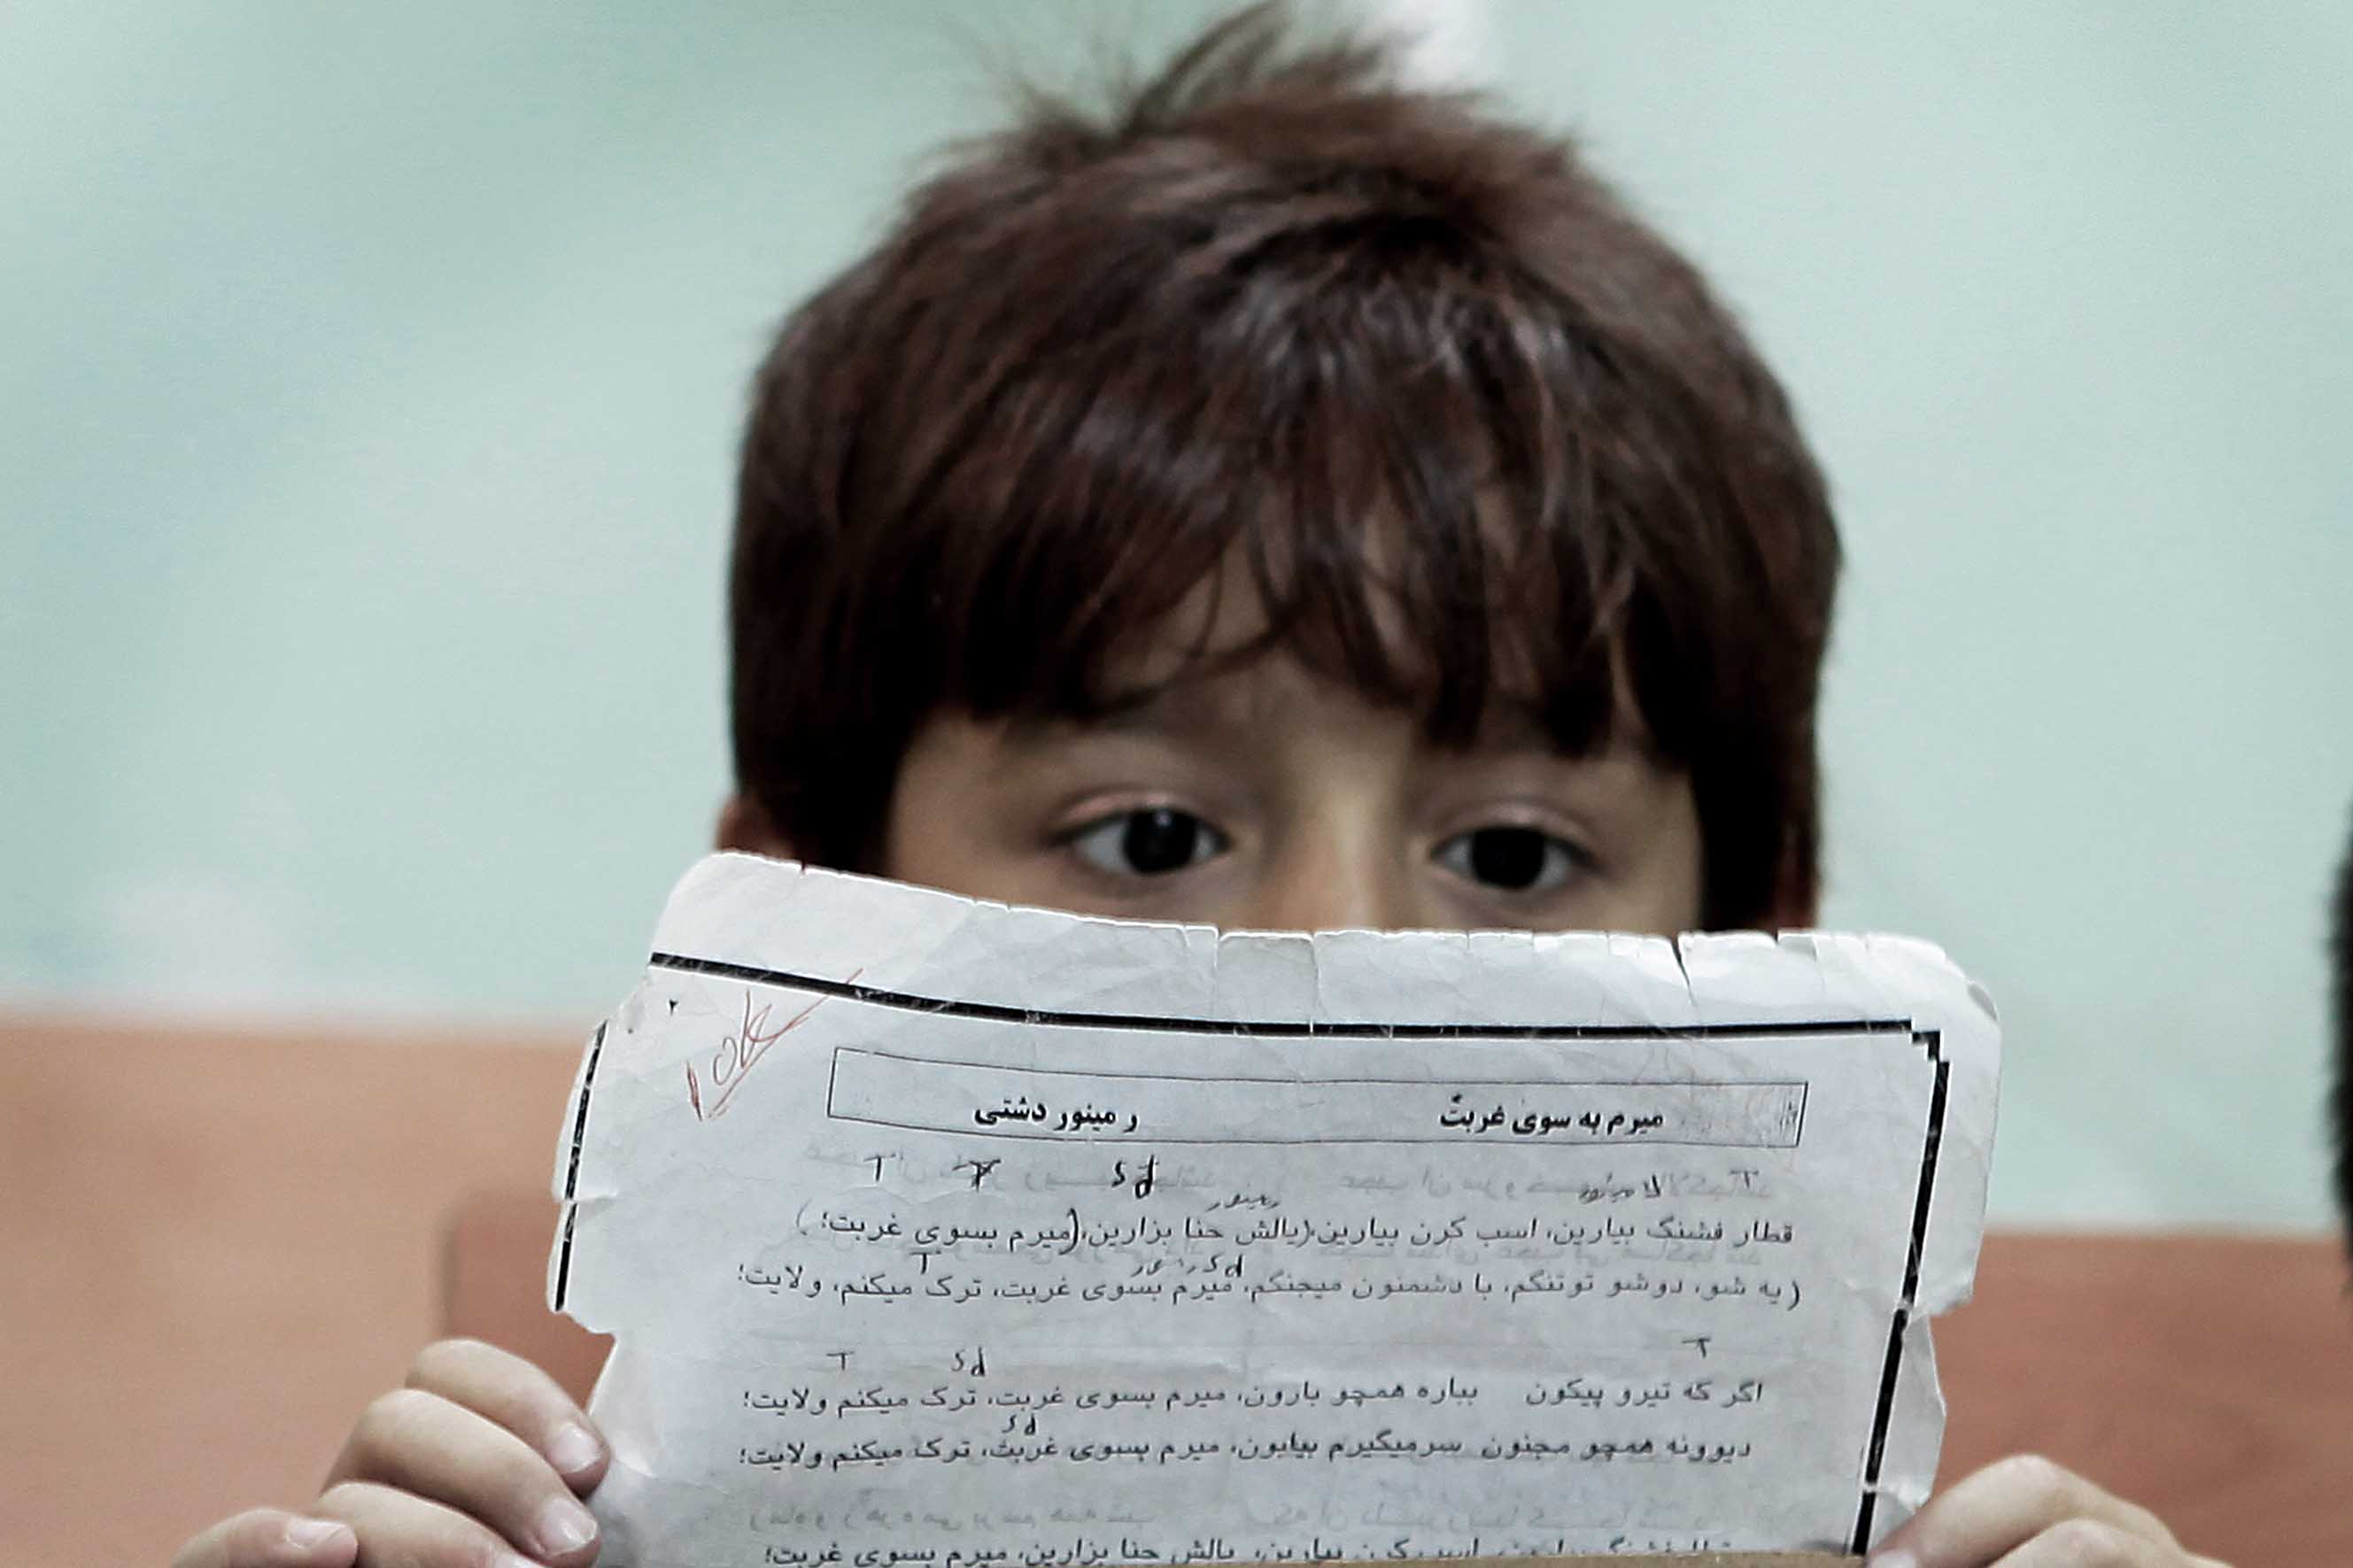 ۲
ok
میرم به سوی غربت ر مینور دشتی
T T
لا مینور
رمینور
قطار فشنگ بیارین، اسب کرن بیارین،(یالش حنا بزارین،(میرم بسوی غربت؛)
T
(یه شو، دوشو توتنگم، با دشمنون میجنگم، میرم بسوی غربت، ترک میکنم، ولایت؛
T T
اگر که تیرو پیکون بباره همچو بارون، میرم بسوی غربت، ترک میکنم ولایت؛
دیوونه همچو مجنون سرمیگیرم بیابون، میرم بسوی غربت، ترک میکنم ولایت؛
قطار فشنگ بیارین، اسب کرن بیارین، یالش حنا بزارین، میرم بسوی غربت؛